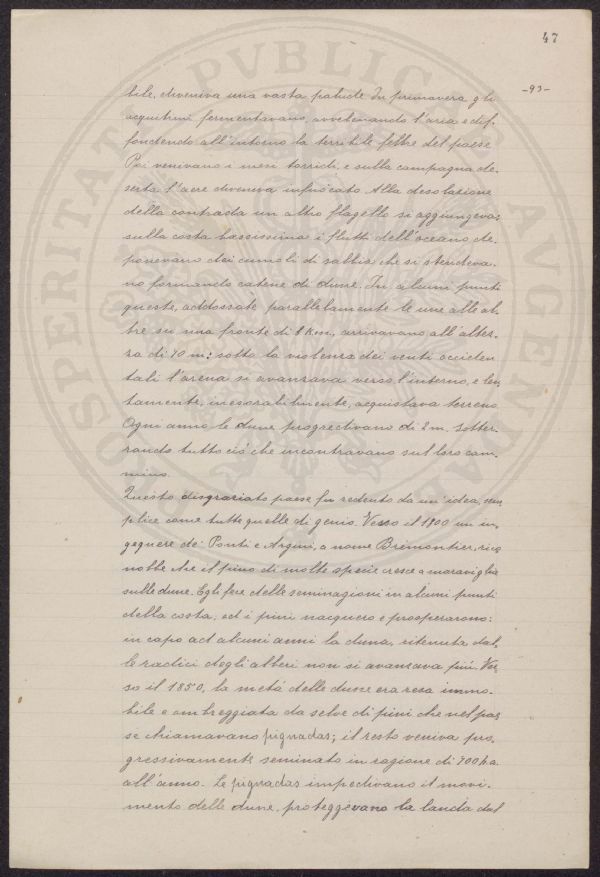 47
-93-
bile, diveniva una vasta palude. In primavera gli
acquitrini fermentavano, avvelenando l'aria e dif-
fondendo all'intorno la terribile febbre del paese
Poi venivano i mesi torridi, e sulla campagna de-
serta l'aere diveniva infuocato. Alla desolazione
della contrada un altro flagello si aggiungeva:
sulla costa bassissima i flutti dell'oceano de-
ponevano dei cumoli di sabbia che si stendeva-
no formando catene di dune. In alcuni punti
queste, addossate parallelamente le une alle al-
tre su una fronte di 8 Km., arrivavano all'altez-
za di 70 m.: sotto la violenza dei venti occiden-
tali l'arena si avanzava verso l'interno, e len-
tamente, inesorabilmente, acquistava terreno
Ogni anno le dune progredivano di 2 m. sotter-
rando tutto ciò che incontravano sul loro cam-
mino.
Questo disgraziato paese fu redento da un'idea, sem-
plice come tutte quelle di genio. Verso il 1800 un in-
gegnere de' Ponti e Argini, a nome Brémontier, rico-
nobbe che il pino di molte specie cresce a maraviglia
sulle dune. Egli fece delle seminagioni in alcuni punti
della costa, ed i pini nacquero e prosperarono:
in capo ad alcuni anni la duna, ritenuta dal-
le radici degli alberi non si avanzava più. Ver-
so il 1850, la metà delle dune era resa immo-
bile e ombreggiata da selve di pini che nel pae-
se chiamavano pignadas; il resto veniva pro-
gressivamente seminato in ragione di 700 ha
all'anno. Le pignadas impedivano il movi-
mento delle dune, proteggevano la landa dal
PVBLIC
AVGENDAE
PROSPERITATI